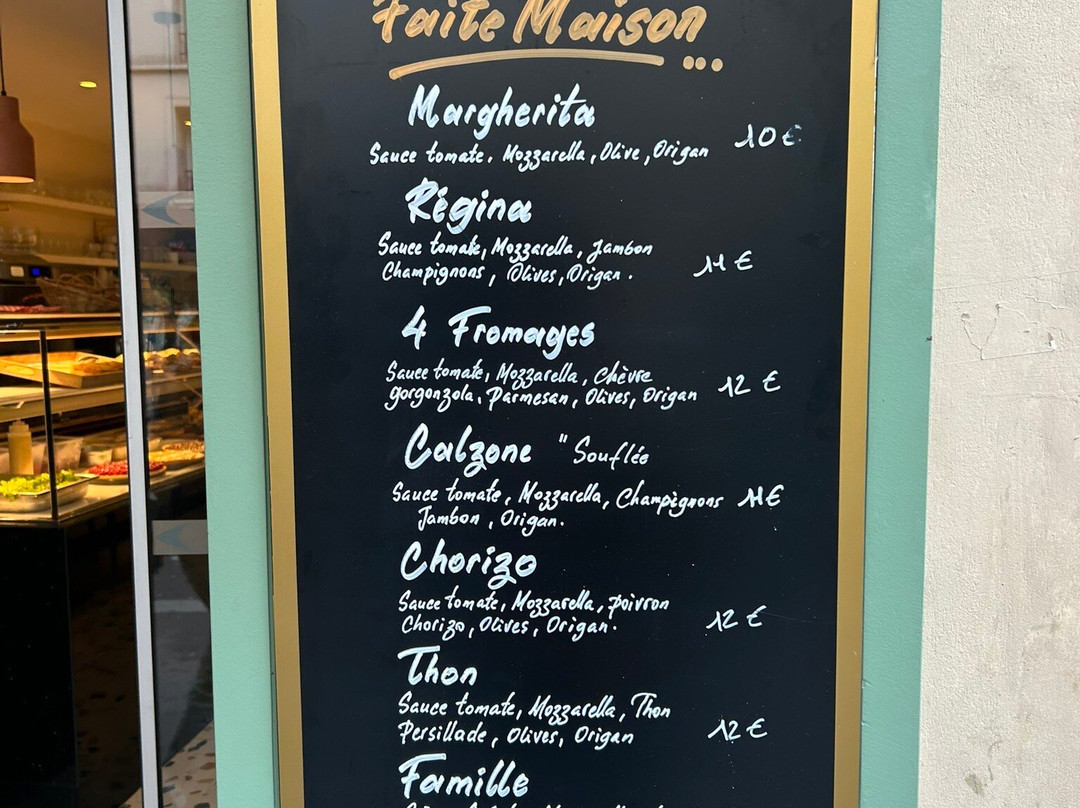 Faite Maison ...
Margherita
Sauce tomate, Mozzarella, Olive, Origan 10 €
Régina
Sauce tomate, Mozzarella, Jambon
Champignons, Olives, Origan. 11 €
4 Fromages
Sauce tomate, Mozzarella, Chèvre
gorgonzola, Parmesan, Olives, Origan 12 €
Calzone "Souflée
Sauce tomate, Mozzarella, Champignons 11 €
Jambon, Origan.
Chorizo
Sauce tomate, Mozzarella, poivron
Chorizo, Olives, Origan. 12 €
Thon
Sauce tomate, Mozzarella, Thon
Persillade, Olives, Origan 12 €
Famille